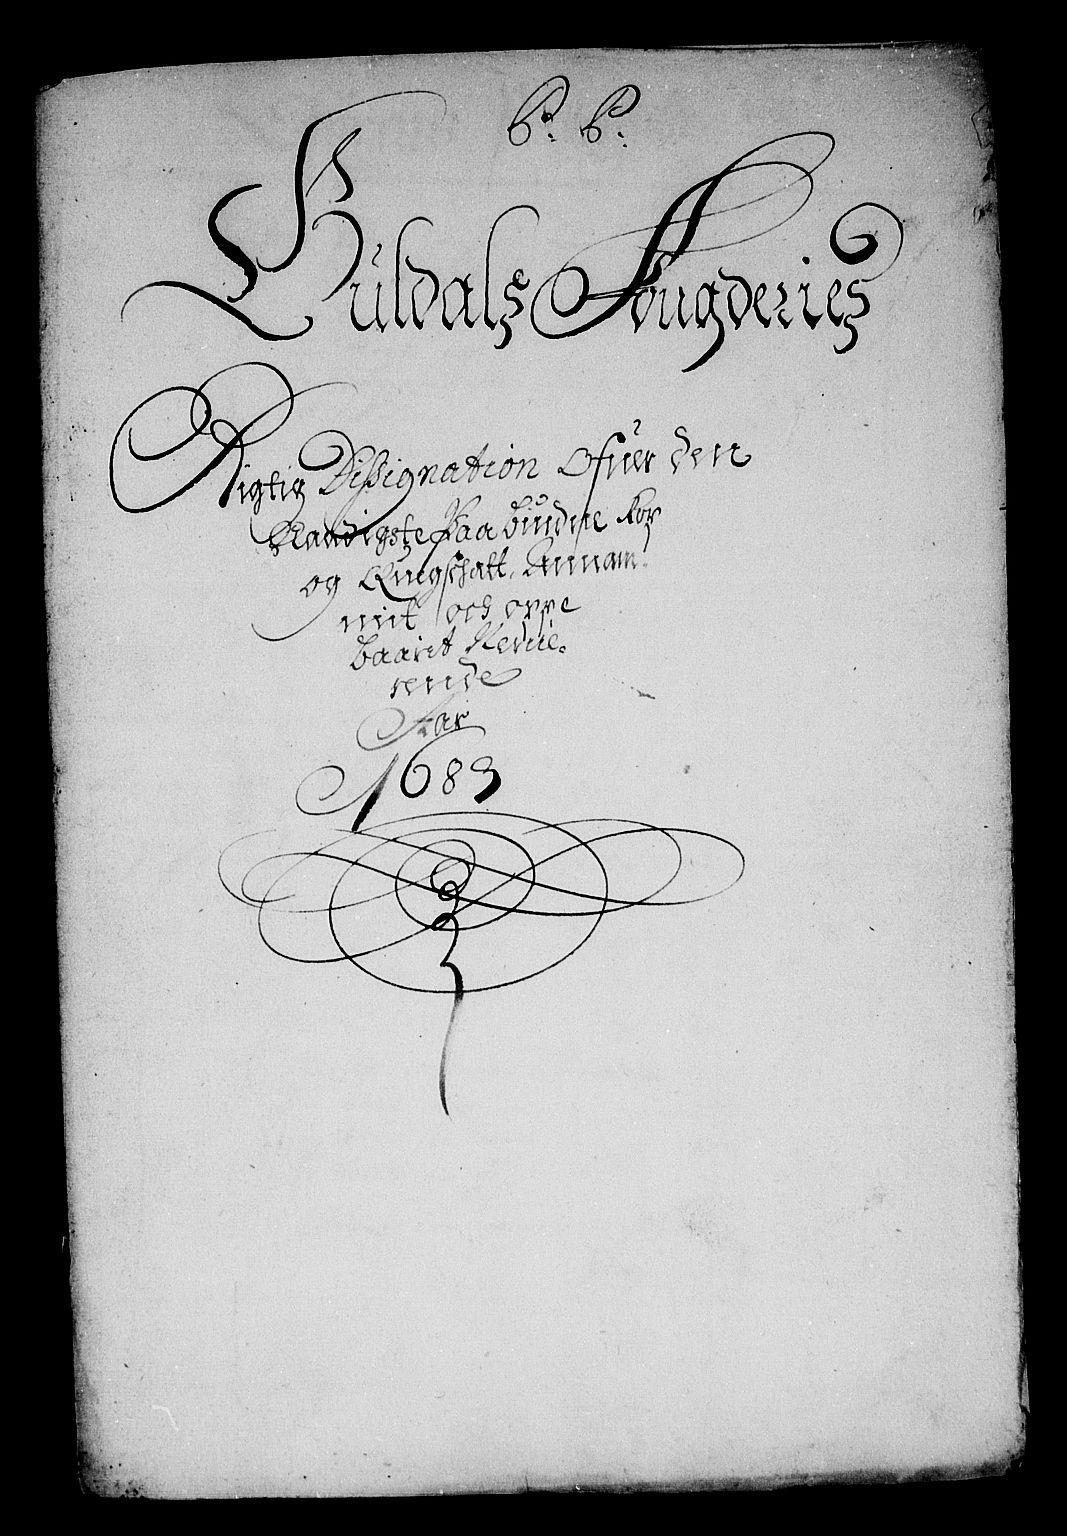 B: B:
Guldals Fougderies
Rigtig Dissignation Ofuer den
Naadigste Paabudne Kor
og Quegschatt, Annam¬
mit och oppe
baarit Nerue¬
rende
Aar
1683